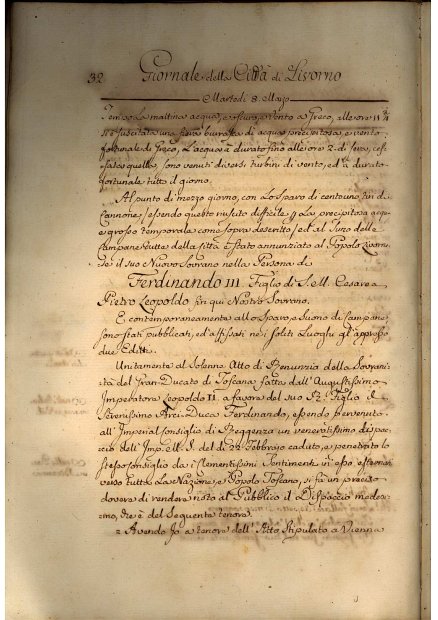 32 Giornale della Città di Livorno
Martedì 8. Marzo
Tempo la mattina acqua, e vento a Greco, alle ore 11
si è suscitata una fiera burrasca di acqua precipitosa, e vento
fortunale di Greco, L'acqua à durato fino alle ore 2. di sera, ces-
sata quella, sono venuti diversi turbini di vento, ed à durato
fortunale tutto il giorno.
Al punto di mezzo giorno, con Lo sparo di centouno tiri di
Cannone / essendo questo riuscito difficile p La precipitosa acqu
e grosso temporale come sopra descritto / ed al suono delle
Campane tutte della Città è stato annunziato al Popolo Livorn
se il suo Nuovo Sovrano nella Persona di
Ferdinando III. Figlio di S. M. Cesarea
Pietro Leopoldo fin qui Nostro Sovrano.
E contemporaneamente allo Sparo, e Suono di Campane
sono stati pubblicati, ed affissati ne i soliti Luoghi gl'appresso
due Editti.
Unitamente al Solenne Atto di Renunzia della Sovrani
tà del Gran-Ducato di Toscana fatta dall'Augustissimo
Imperatore Leopoldo II. a favore del suo Figlio il
Serenissimo Arci-Duca Ferdinando, essendo pervenuto
all'Imperial Consiglio di Reggenza un veneratissimo dispac-
cio dell'Imp. M. S. del dì 22 Febbraio caduto, e penetrato lo
stesso Consiglio da i Clementissimi Sentimenti in esso esternati
verso tutta La Nazione, e Popolo Toscano, si fà un preciso
dovere di rendere noto al Pubblico il Dispaccio medesi-
mo, che è del Seguente tenore.
Avendo Io a tenore dell'Atto Stipulato a Vienna